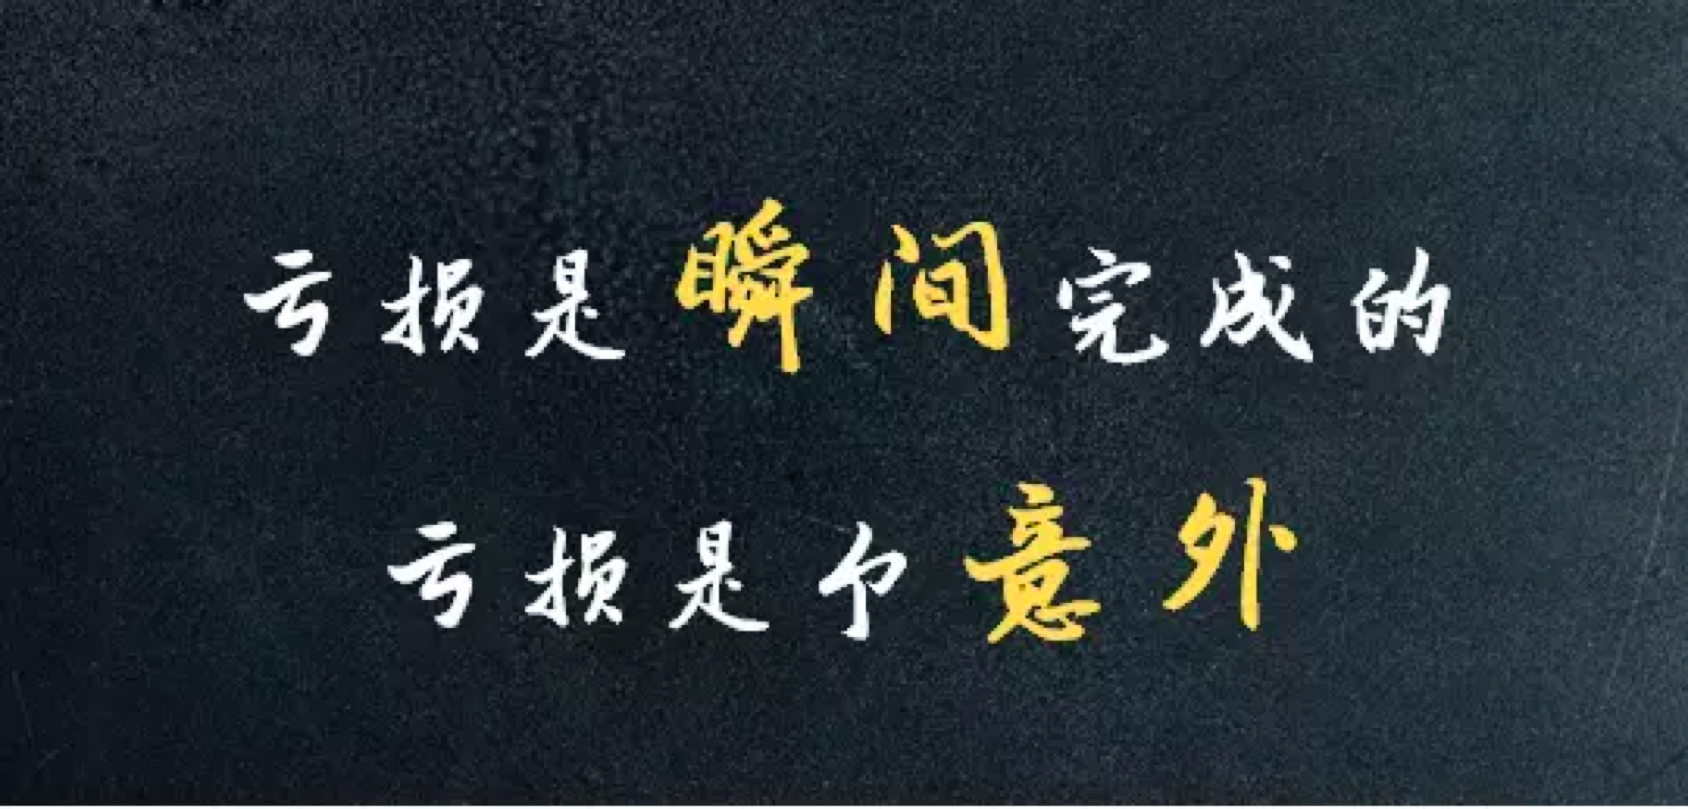 亏损是瞬间完成的
亏损是个意外